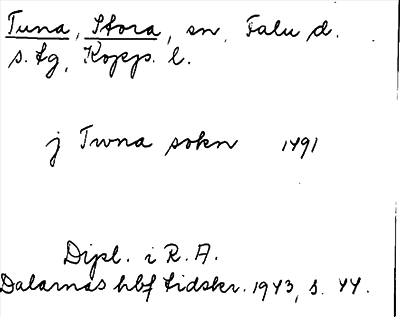 Tuna, Stora, sn, Falu d.
s. tg, Kopp. l.
j Twna sokn 1491
Dipl. i R. A.
Dalarnas hbf tidskr. 1943, s. 44.